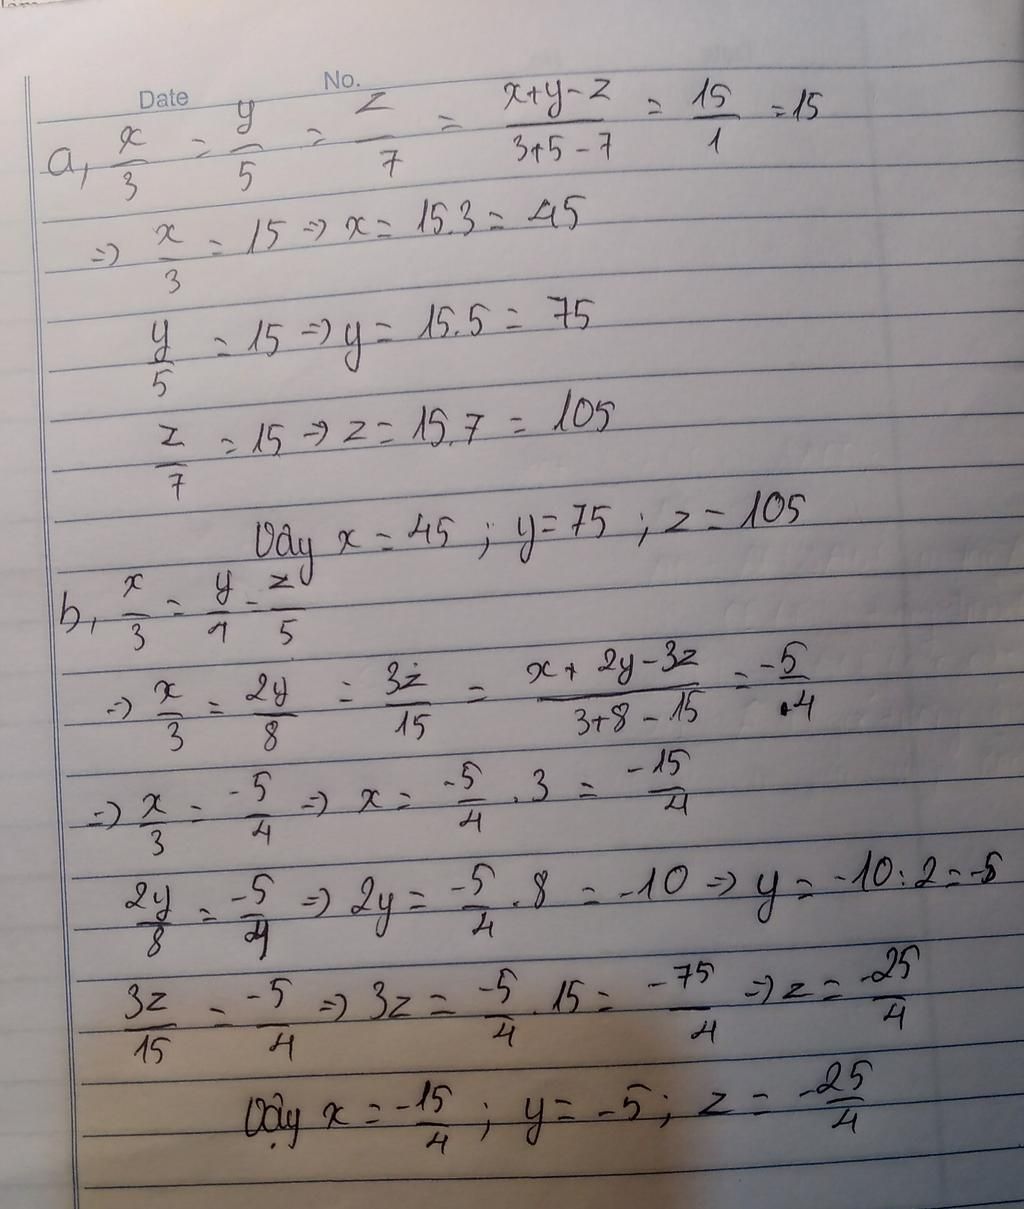 Date No.
a, x/3 = y/5 = z/7 = (x+y-z)/(3+5-7) = 15/1 = 15
=> x/3 = 15 => x = 15.3 = 45
y/5 = 15 => y = 15.5 = 75
z/7 = 15 => z = 15.7 = 105
Vây x = 45 ; y = 75 ; z = 105
b, x/3 = y/4 = z/5
=> x/3 = 2y/8 = 3z/15 = (x + 2y - 3z)/(3+8-15) = -5/4
=> x/3 = -5/4 => x = -5/4 . 3 = -15/4
2y/8 = -5/4 => 2y = -5/4 . 8 = -10 => y = -10 : 2 = -5
3z/15 = -5/4 => 3z = -5/4 . 15 = -75/4 => z = -25/4
Vậy x = -15/4 ; y = -5 ; z = -25/4